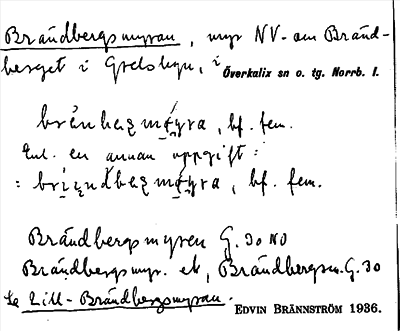 Brändbergsmyran, myr NV-om Bränd-
berget i Grelsbyn, i Överkalix sn o. tg. Norrb. l.
bf. fem.
Enl. en annan uppgift:
bf. fem.
Brändbergsmyren G. 30 NO
Brändbergsmyr. ek, Brändbergsm. G. 30
Se Lill-Brändbergsmyran.
EDVIN BRÄNNSTRÖM 1936.